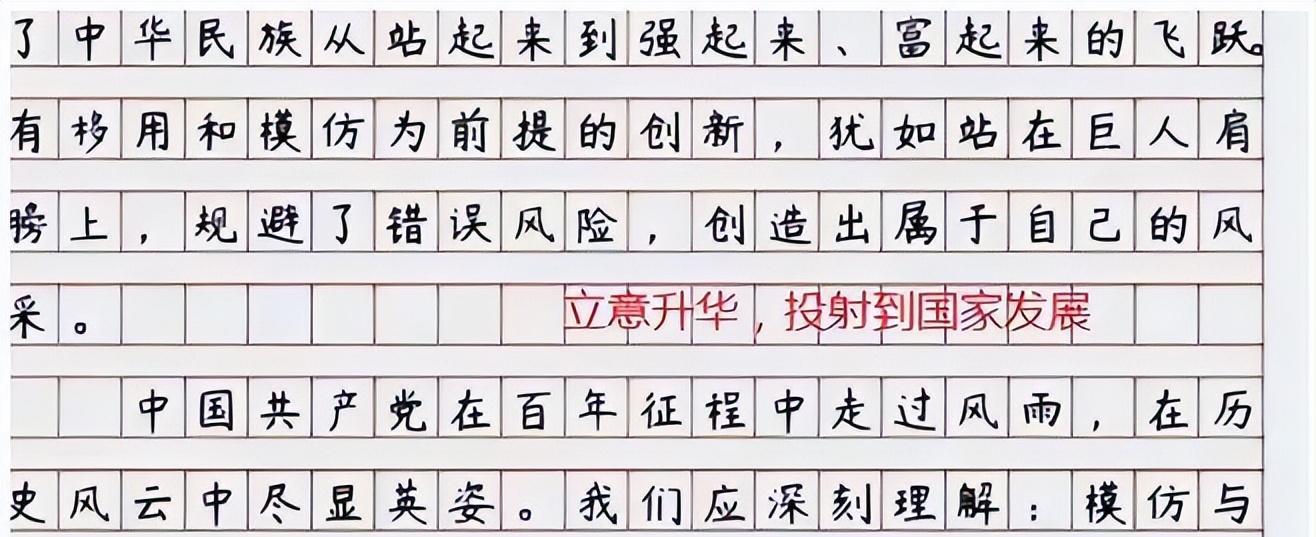 了中华民族从站起来到强起来、富起来的飞跃。
有移用和模仿为前提的创新，犹如站在巨人肩
膀上，规避了错误风险，创造出属于自己的风
采。
立意升华，投射到国家发展
中国共产党在百年征程中走过风雨，在历
史风云中尽显英姿。我们应深刻理解：模仿与